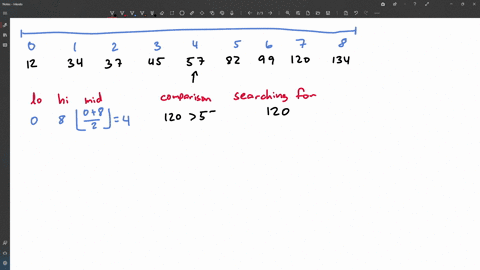 0 1 2 3 4 5 6 7 8
12 34 37 45 57 82 99 120 134
lo hi mid comparison searching for
0 8 ⌊(0+8)/2⌋ = 4 120 > 5 120